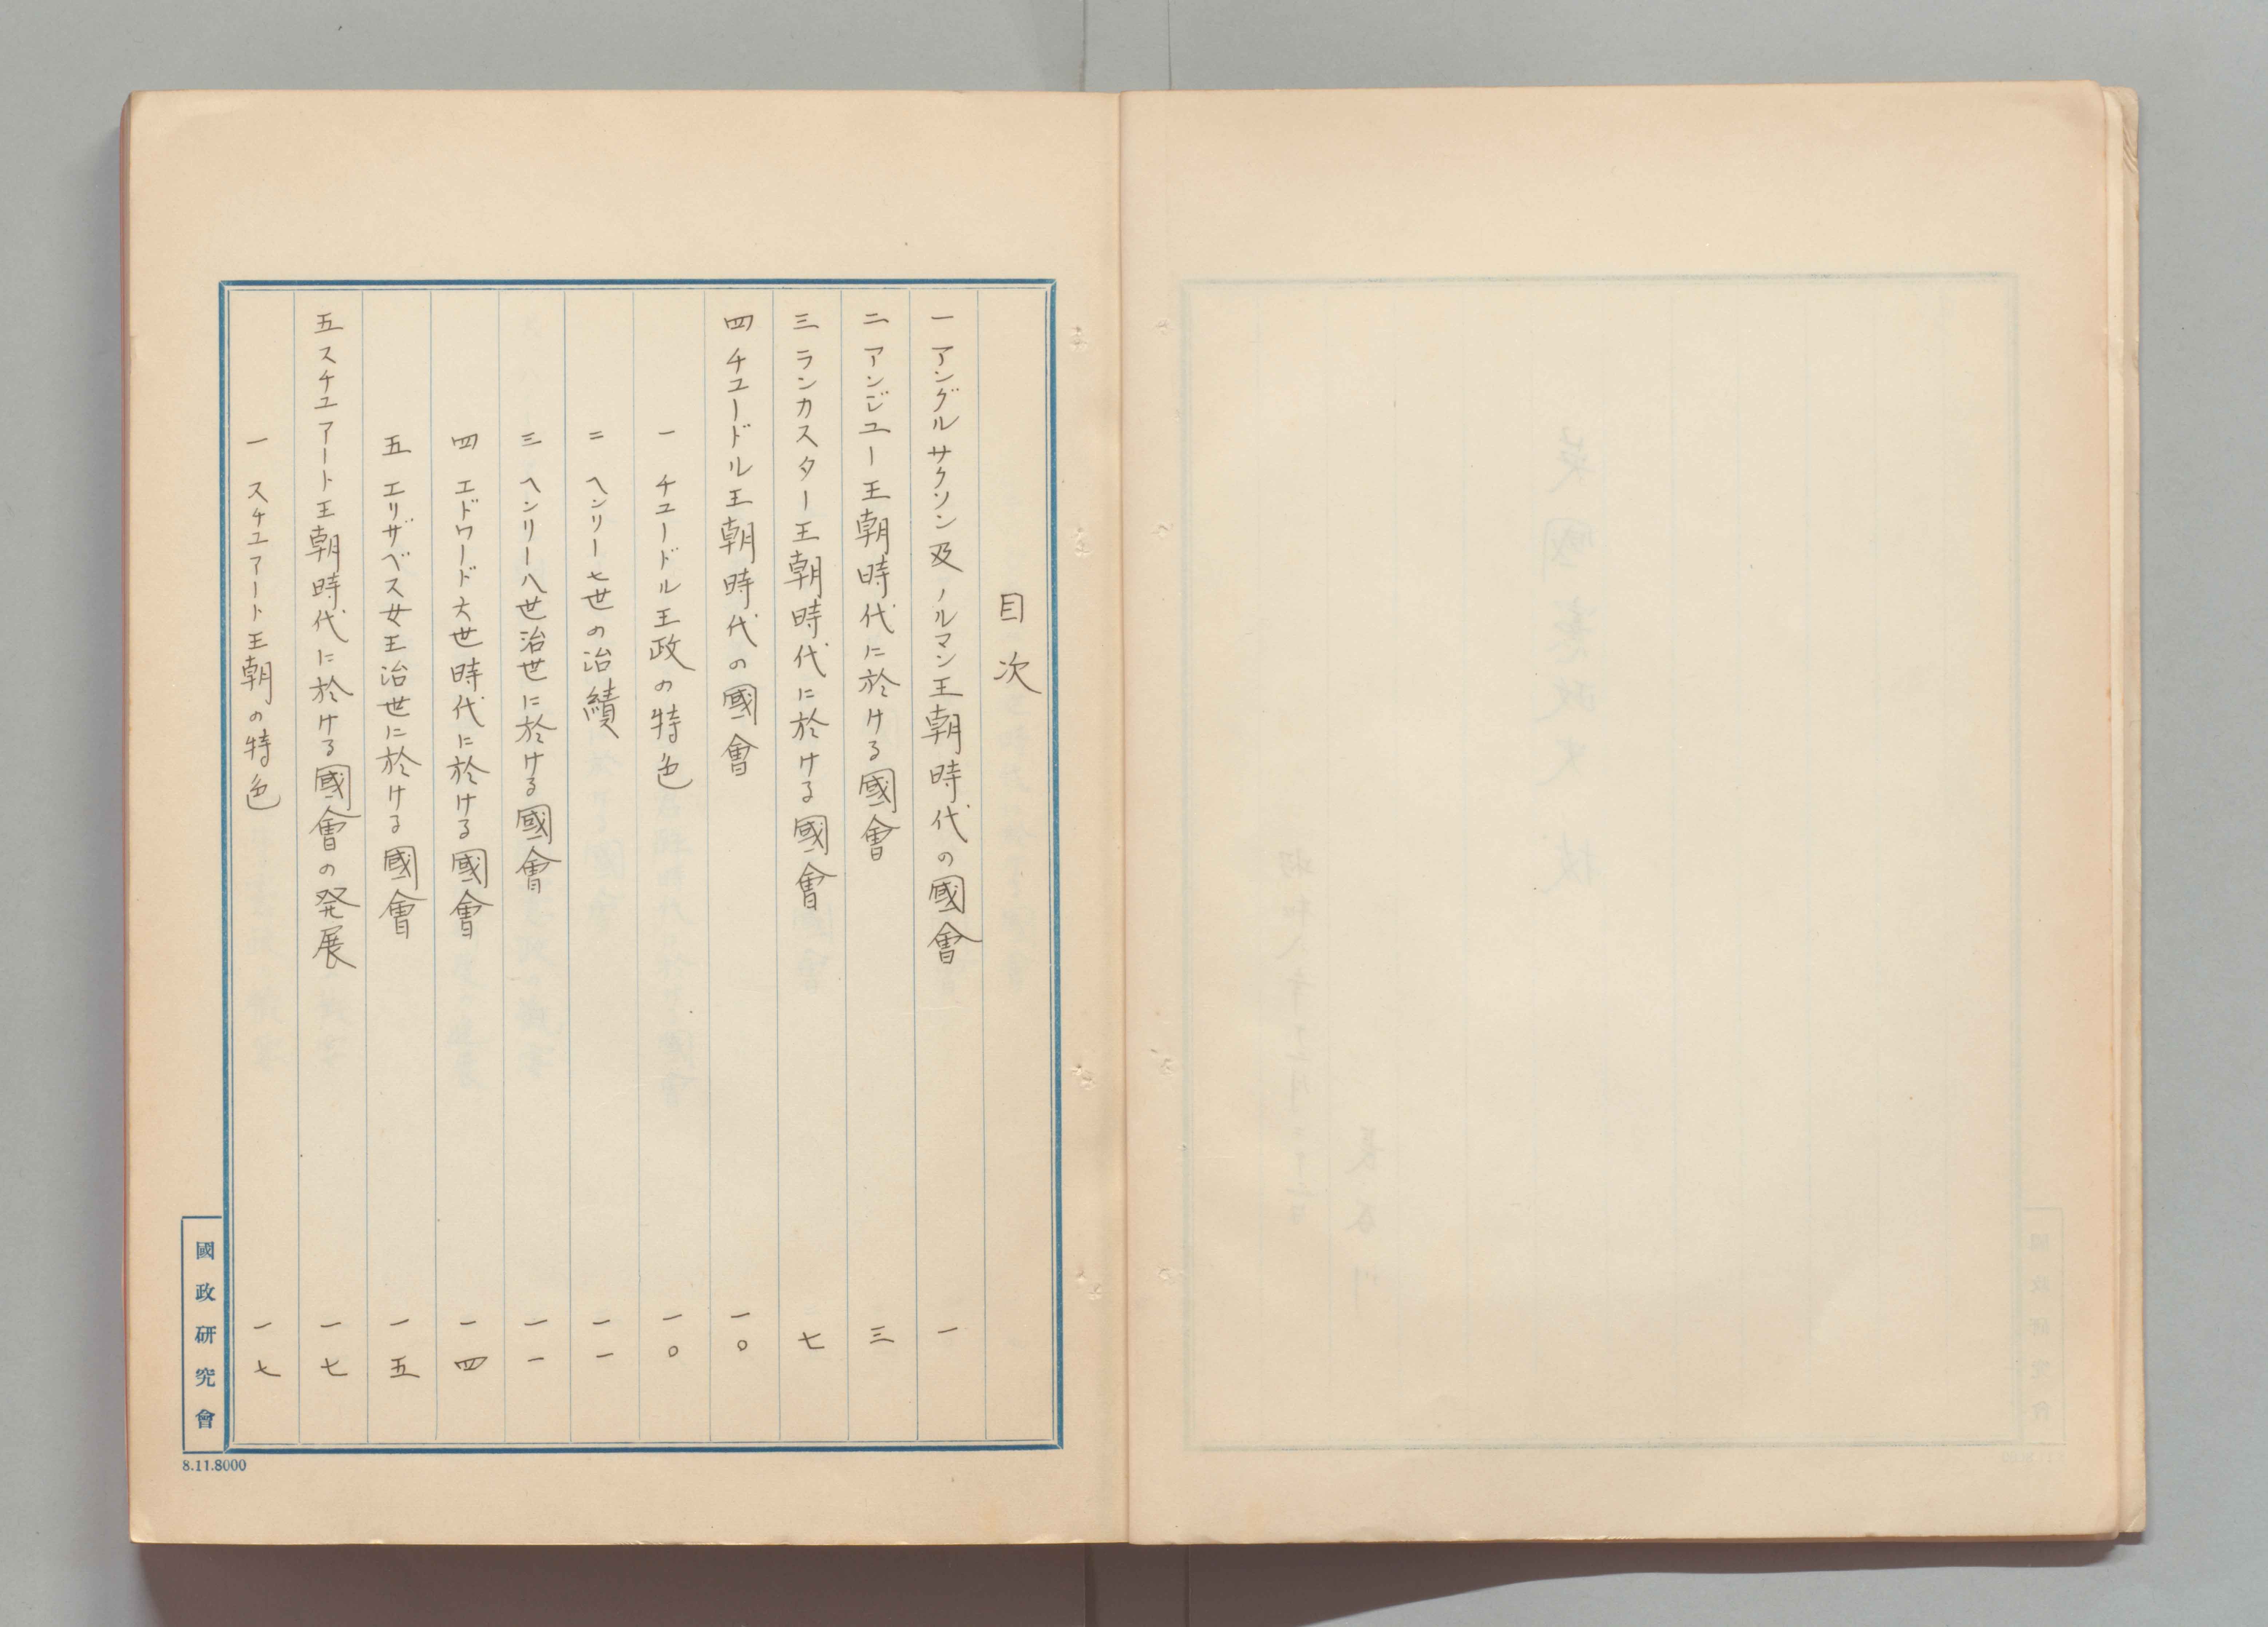 目次
一 アングルサクソン及ノルマン王朝時代の國會 一
二 アンジユー王朝時代に於ける國會 三
三 ランカスター王朝時代に於ける國會 七
四 チユードル王朝時代の國會 一〇
一 チユードル王政の特色 一〇
二 ヘンリー七世の治績 一一
三 ヘンリー八世治世に於ける國會 一一
四 エドワード六世時代に於ける國會 一四
五 エリザベス女王治世に於ける國會 一五
五 スチユアート王朝時代に於ける國會の発展 一七
一 スチユアート王朝の特色 一七
國政研究會
8.11.8000